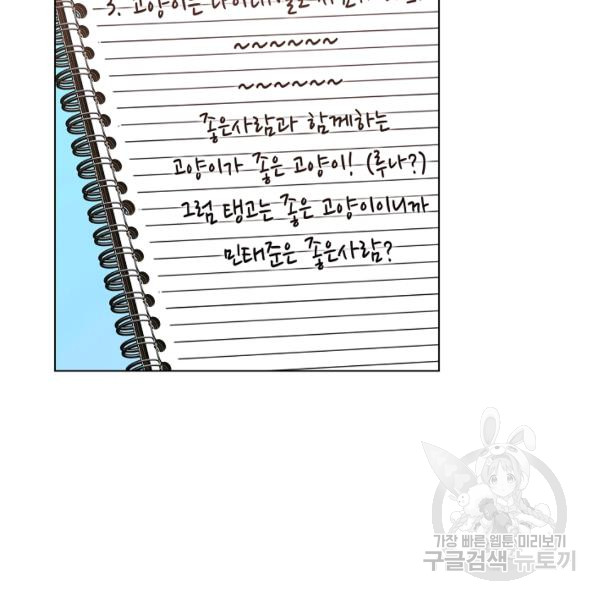 3. 고양이는
~~~~~~
~~~~~~
좋은사람과 함께하는
고양이가 좋은 고양이! (루나?)
그럼 탱고는 좋은 고양이이니까
민태준은 좋은사람?
가장 빠른 웹툰 미리보기
구글검색 뉴토끼